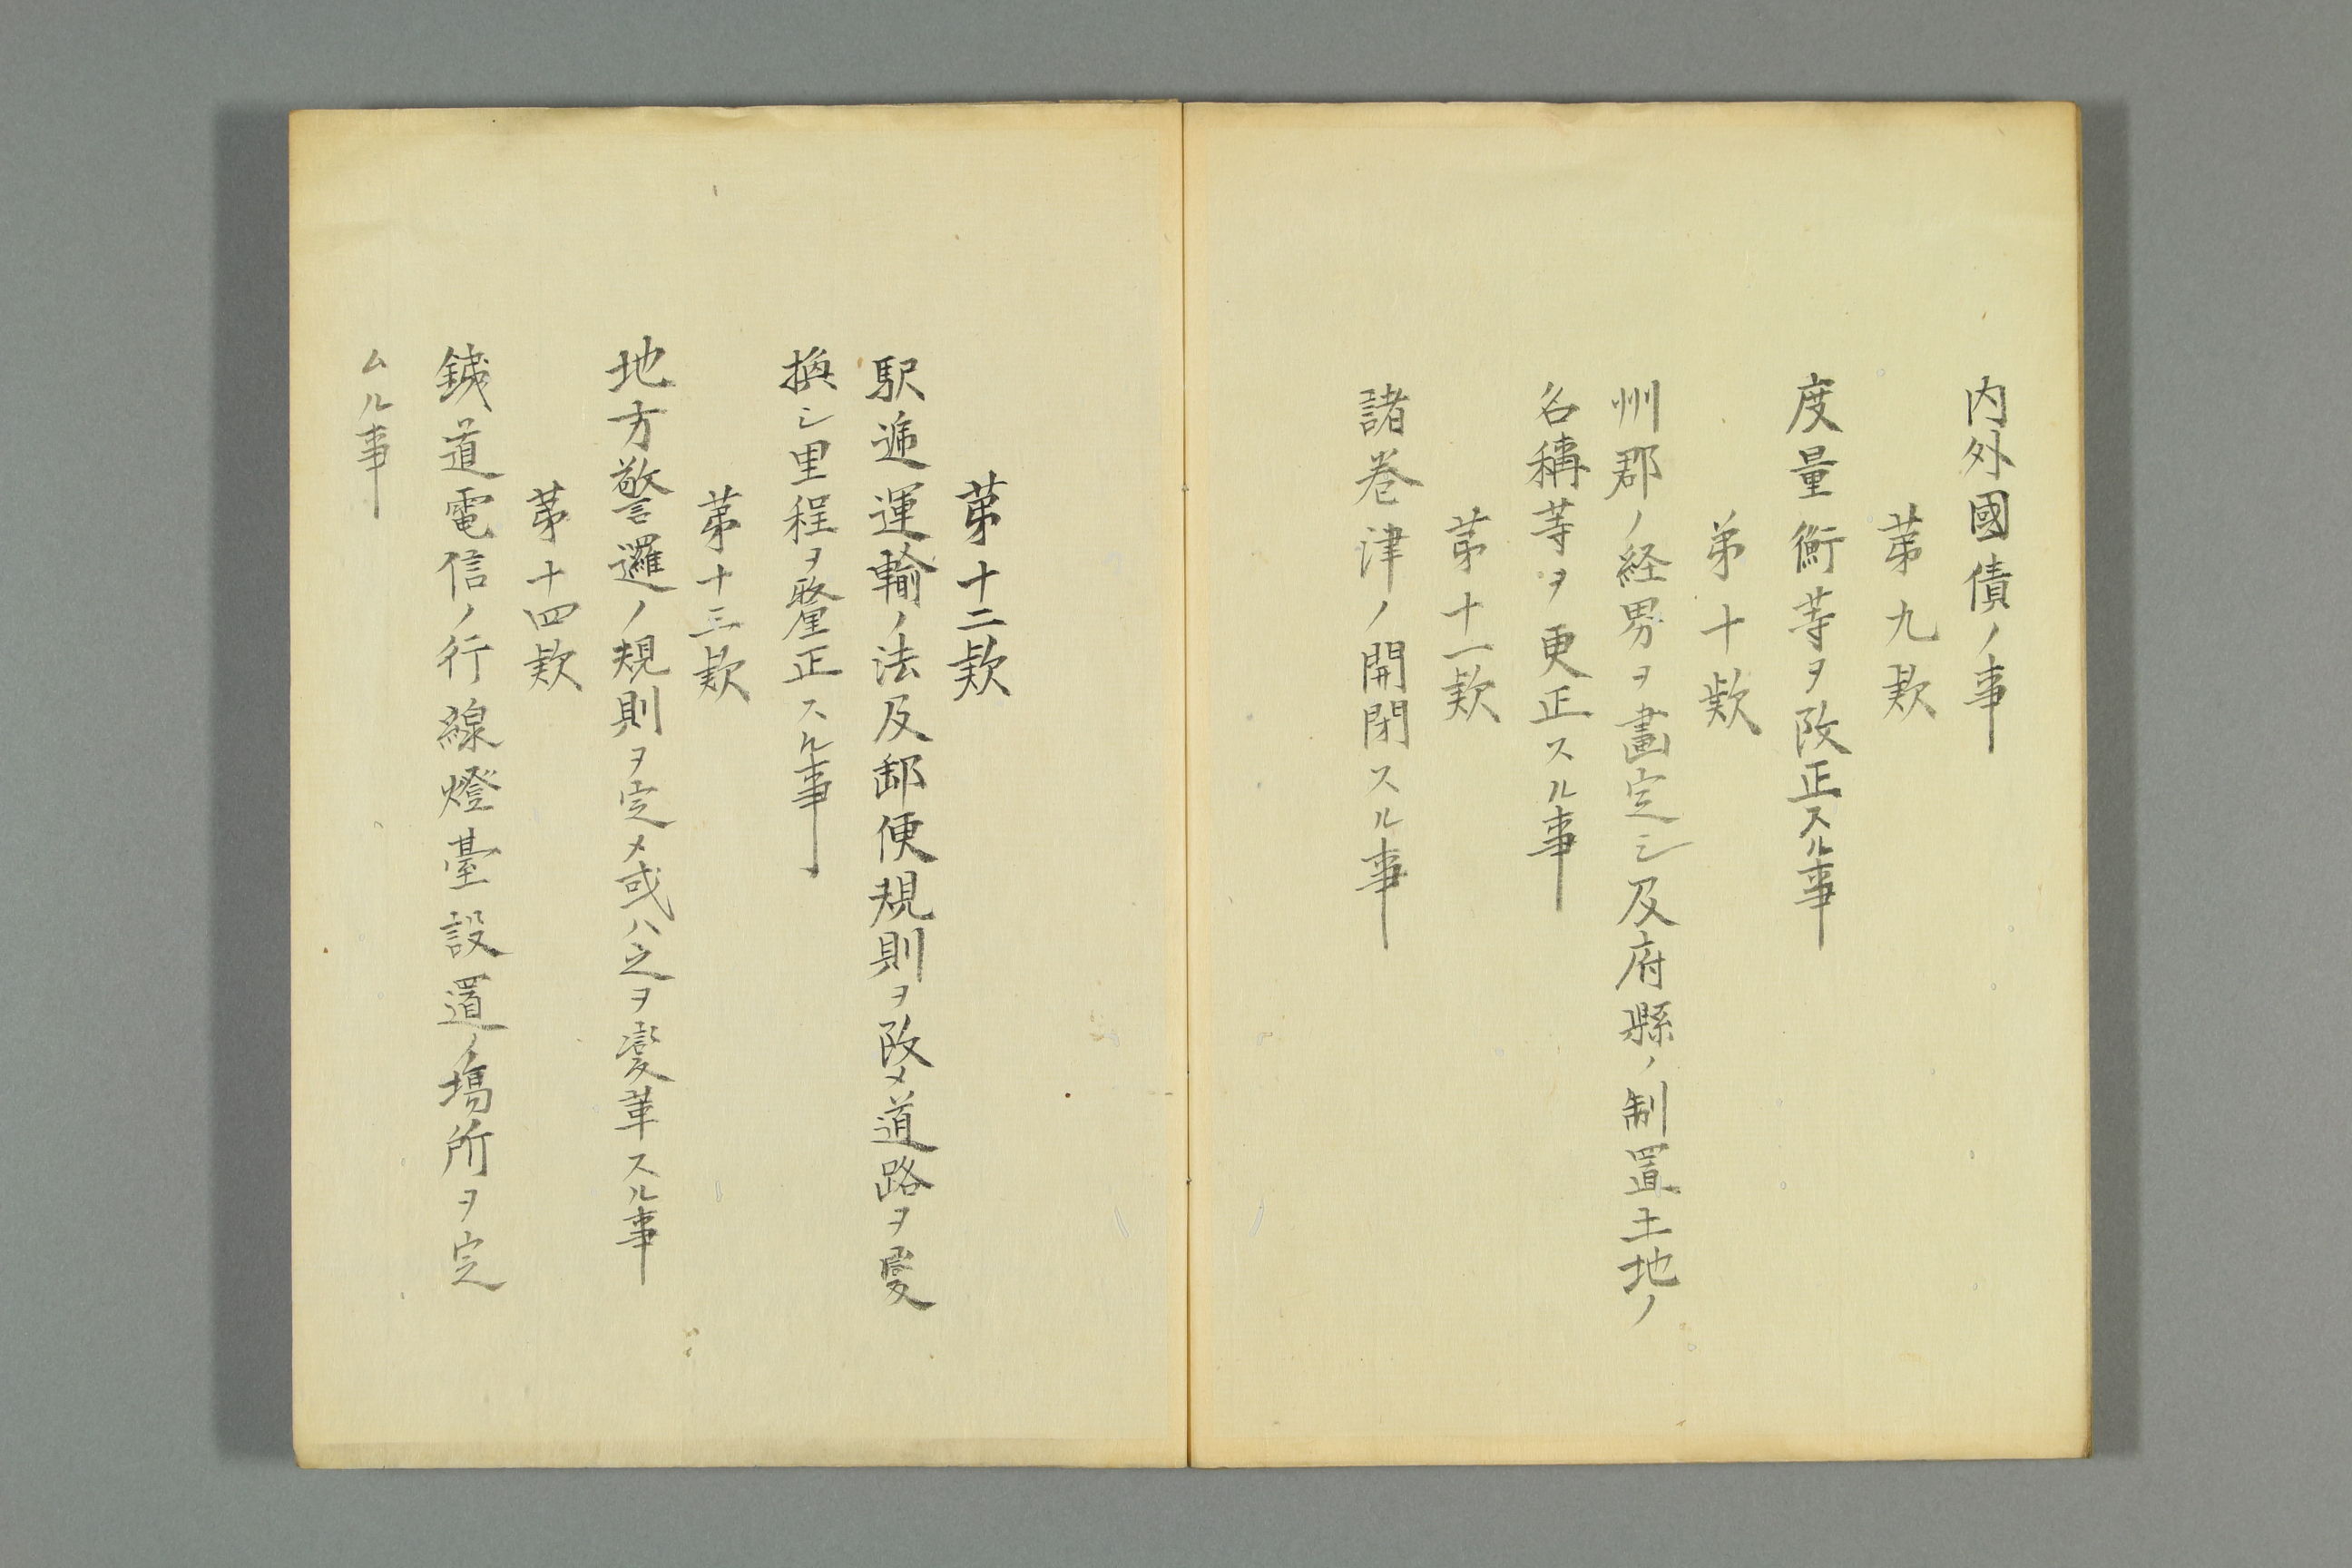 内外國債ノ事
第九款
度量衡等ヲ改正スル事
第十款
州郡ノ経界ヲ畫定シ及府縣ノ制置土地ノ
名稱等ヲ更正スル事
第十一款
諸巷津ノ開閉スル事
第十二款
駅逓運輸ノ法及郵便規則ヲ改メ道路ヲ変
換シ里程ヲ釐正スル事
第十三款
地方警邏ノ規則ヲ定メ或ハ之ヲ変革スル事
第十四款
鐵道電信ノ行線燈臺設置ノ塲所ヲ定
ムル事